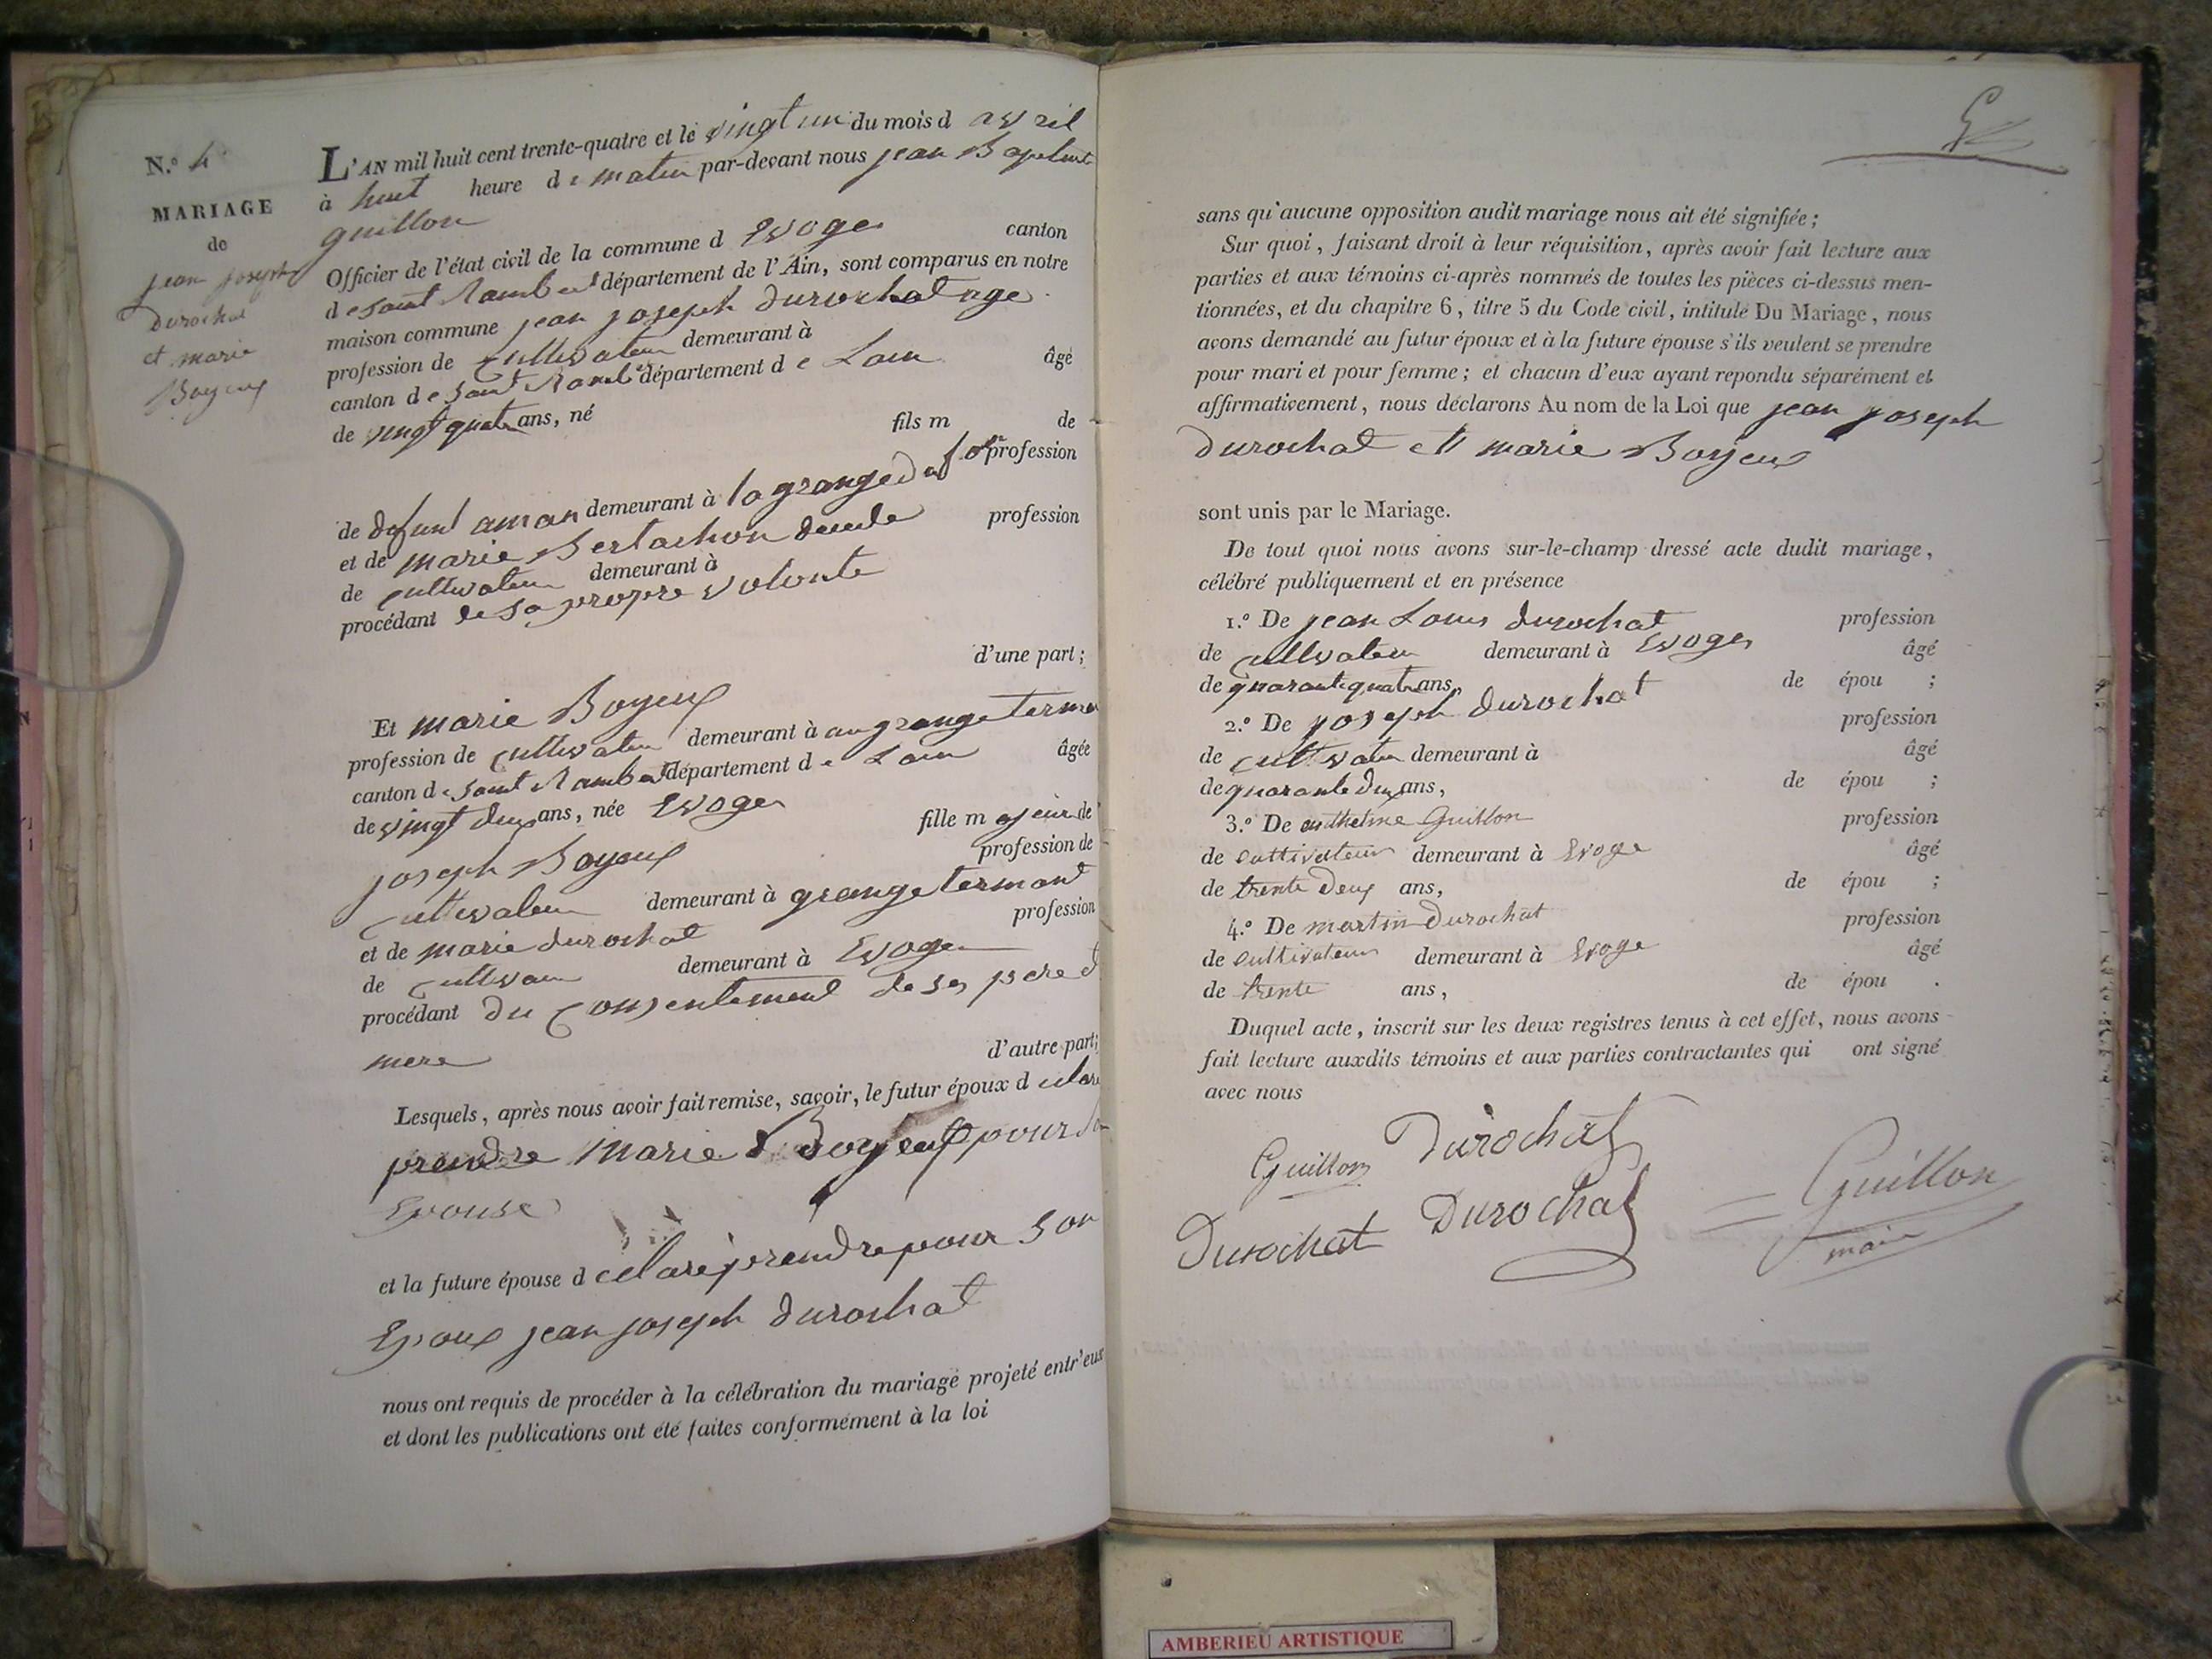 N.º 4
MARIAGE
de
jean joseph
Durochat
et marie
Boyeux
L'AN mil huit cent trente-quatre et le vingt un du mois d avril
à huit heure de matin par-devant nous jean Baptiste
guillon
Officier de l'état civil de la commune d Evoges canton
de saint Rambert département de l'Ain, sont comparus en notre
maison commune jean joseph durochat age
profession de cultivateur demeurant à
canton de saint Rambert département de Lain âgé
de vingt quatre ans, né fils m de
profession
de defunt aman demeurant à la grange
et de marie Bertachon profession
de cultivateur demeurant à
procédant de sa propre volonte
d'une part;
Et marie Boyeux
profession de cultivateur demeurant à au grange termen
canton de saint Rambert département de Lain âgée
de vingt deux ans, née Evoges fille majeure de
joseph Boyeux profession de
cultivateur demeurant à grange termant
et de marie durochat profession
de demeurant à Evoge
procédant du consentement de ses pere et
mere d'autre part;
Lesquels, après nous avoir fait remise, savoir, le futur époux d eclare
prendre marie Boyeux pour son
Epouse
et la future épouse d eclare prendre pour son
Epoux jean joseph durochat
nous ont requis de procéder à la célébration du mariage projeté entr'eux
et dont les publications ont été faites conformément à la loi
sans qu'aucune opposition audit mariage nous ait été signifiée;
Sur quoi, faisant droit à leur réquisition, après avoir fait lecture aux
parties et aux témoins ci-après nommés de toutes les pièces ci-dessus men-
tionnées, et du chapitre 6, titre 5 du Code civil, intitulé Du Mariage, nous
avons demandé au futur époux et à la future épouse s'ils veulent se prendre
pour mari et pour femme; et chacun d'eux ayant repondu séparément et
affirmativement, nous déclarons Au nom de la Loi que jean joseph
durochat et marie Boyeux
sont unis par le Mariage.
De tout quoi nous avons sur-le-champ dressé acte dudit mariage,
célébré publiquement et en présence
1.º De jean Louis durochat profession
de cultivateur demeurant à Evoges âgé
de quarante quatre ans, de épou ;
2.º De joseph durochat profession
de cultivateur demeurant à âgé
de quarante deux ans, de épou ;
3.º De anthelme Guillon profession
de cultivateur demeurant à Evoge âgé
de trente deux ans, de épou ;
4.º De martin Durochat profession
de cultivateur demeurant à Evoge âgé
de trente ans, de épou .
Duquel acte, inscrit sur les deux registres tenus à cet effet, nous avons
fait lecture auxdits témoins et aux parties contractantes qui ont signé
avec nous
Guillon Durochat
Durochat Durochat Guillon
maire
AMBERIEU ARTISTIQUE